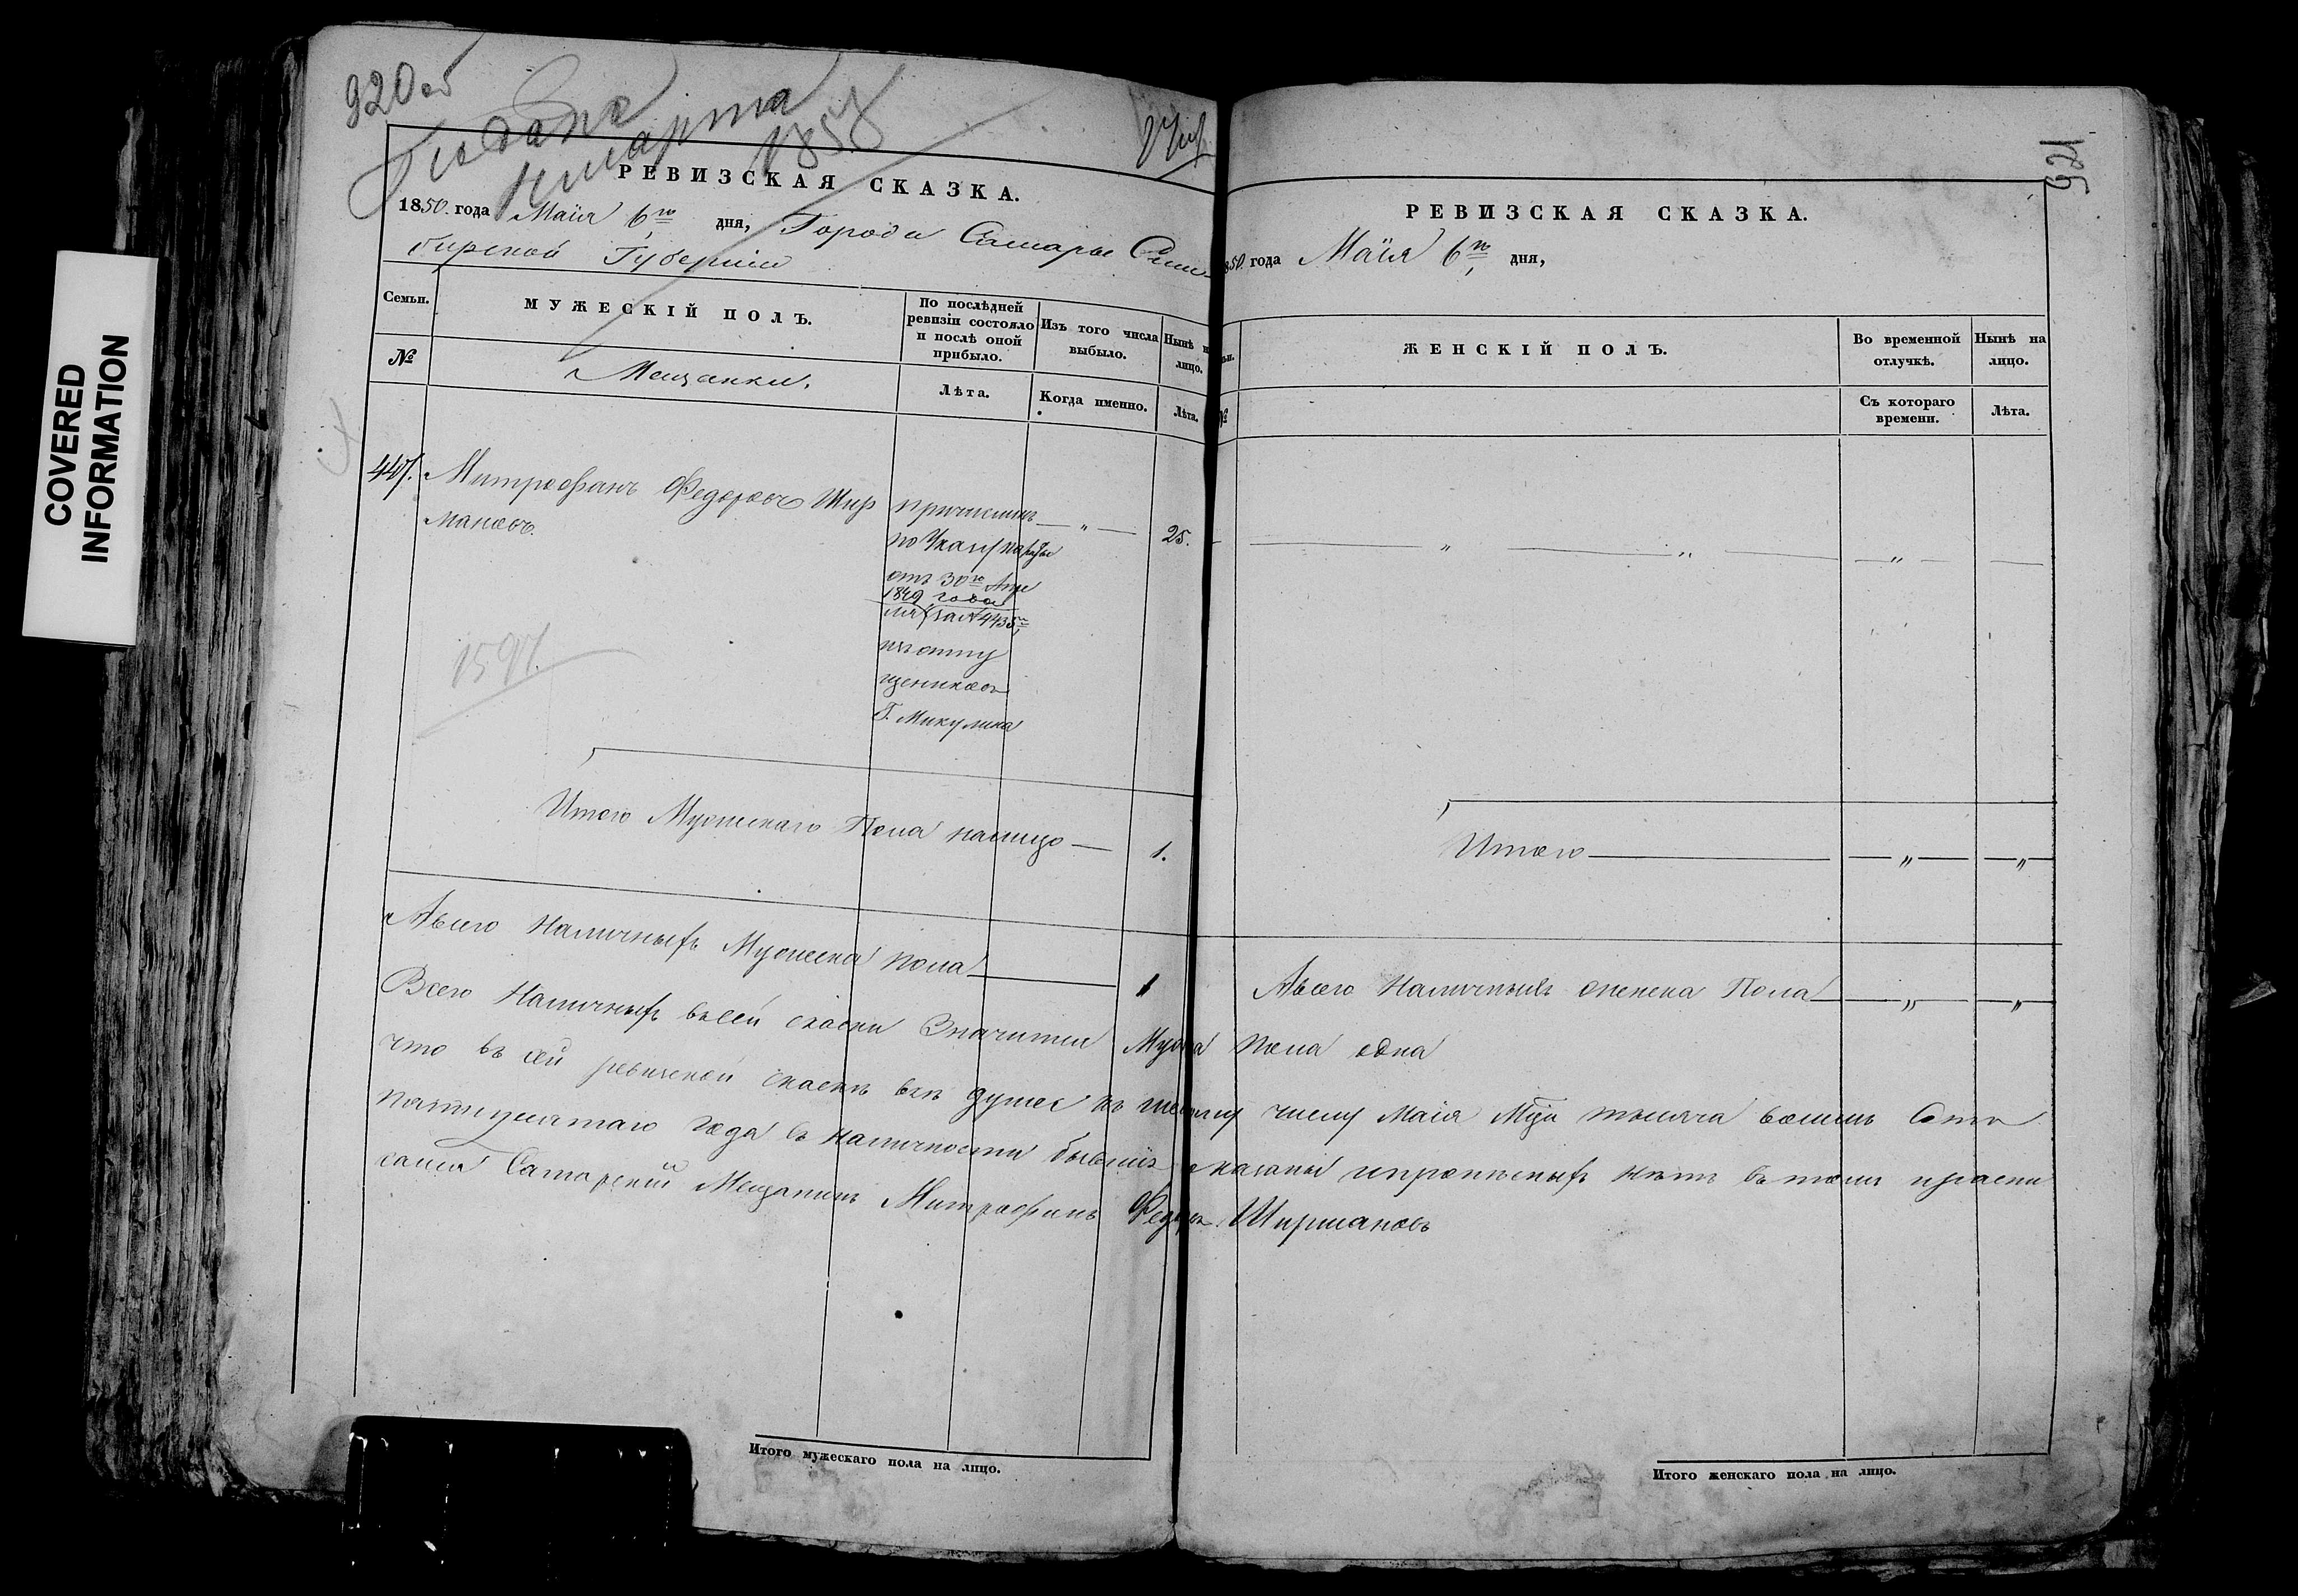 COVERED
INFORMATION
920 об
Подана
марта
1858
РЕВИЗСКАЯ СКАЗКА.
1850. года Маія 6го дня, Города Самары Сим-
бирской Губерніи
Семьи.
МУЖЕСКІЙ ПОЛЪ.
По послѣдней
ревизіи состояло
и послѣ оной
прибыло.
Изъ того числа
выбыло.
Нынѣ на
лицо.
№
Мещанки.
Лѣта.
Когда именно.
Лѣта.
Митрофанъ Федоровъ Шир
мановъ.
причисленъ — „ — 25.
по Указу палаты
отъ 30го Апре
1849 года
ля за № 4435м
изъ отпу
щениковъ
Г. Микулина
1597.
Итого Мужескаго Пола налицо — 1.
Авсего Наличныхъ Мужеска пола — 1
Всего Наличныхъ въсей скаски Значится Мужа пола одна
что въ сей ревизской скаскѣ всѣ душ къ шестому числу Маія тысяча восемь Сотъ
пятидесятаго года въ наличности бывшія показаны ипрописныхъ нѣтъ въ томъ
Самарскій Мещанинъ Митрофанъ Федоровъ Ширмановъ
Итого мужескаго пола на лицо.
921
РЕВИЗСКАЯ СКАЗКА.
850. года Маія 6го, дня,
ЖЕНСКІЙ ПОЛЪ.
Во временной
отлучкѣ.
Нынѣ на
лицо.
№
Съ котораго
времени.
Лѣта.
Итого — „ — „
Авсего Наличныхъ женска Пола — „ — „
Итого женскаго пола на лицо.